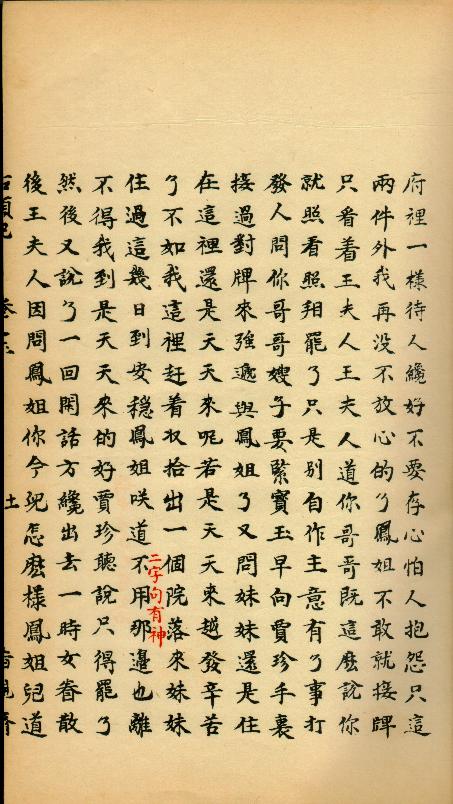 府裡一樣待人纔好不要存心怕人抱怨只這
兩件外我再没不放心的了鳳姐不敢就接牌
只看着王夫人王夫人道你哥哥既這麽說你
就照看照㸔罷了只是别自作主意有了事打
發人問你哥哥嫂子要緊寳玉早向賈珍手裏
接過對牌來強遞與鳳姐了又問妹妹還是住
在這裡還是天天來呢若是天天來越發辛苦
了不如我這裡赶着収拾出一個院落來妹妹
住過這幾日到安穏鳳姐咲道不用那邉也離
二字句有神
不得我到是天天來的好賈珍聽說只得罷了
然後又說了一回閒話方纔出去一時女眷散
後王夫人因問鳳姐你今兒怎麽樣鳳姐兒道